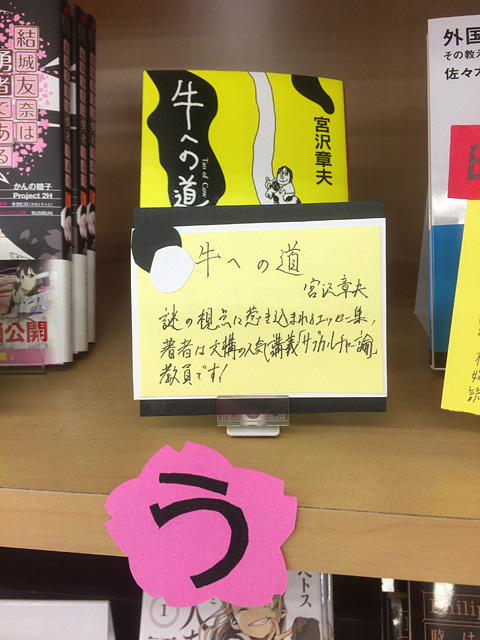 結城友奈は
勇者である
かんの糖子
Project 2H
BUNBUN
公開
牛への道
Tao of Cow
宮沢章夫
牛への道
宮沢章夫
謎の視点に惹き込まれるエッセー集。
著者は文構の人気講義「サブカルチャー論」
教員です!
う
外国
その教え
佐々木
1
人
トス
Philip
時は